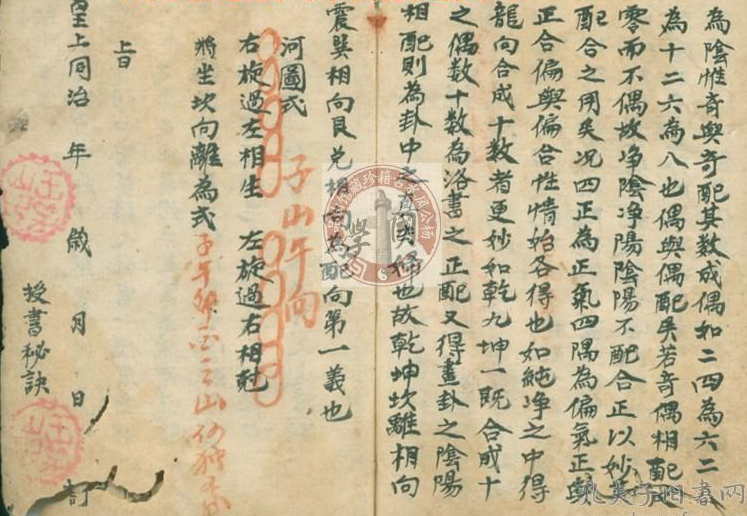 為陰惟奇與奇配其數成偶如二四為六二八
為十二六為八也偶與偶配矣若奇偶相配
零而不偶故净陰净陽陰陽不配合正以妙
配合之用矣况四正為正氣四隅為偏氣正與
正合偏與偏合性情始各得也如純净之中得
龍向合成十數者更妙如乾九坤一既合成十
之偶数十數為洛書之正配又得畫卦之陰陽
相配則為卦中之也故乾坤坎離相向
震巽相向艮兑相向為配向第一義也
河圖式
子山午向
右旋過左相生 左旋過右相尅
將坐坎向離為式
子午
山
旨
皇上同治 年 歲 月 日 訂
授書秘訣